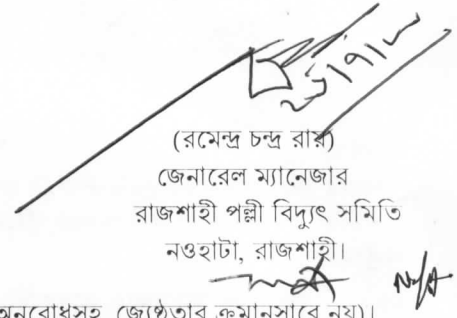 (রমেন্দ্র চন্দ্র রায়)
জেনারেল ম্যানেজার
রাজশাহী পল্লী বিদ্যুৎ সমিতি
নওহাটা, রাজশাহী।
অনুরোধসহ, জ্যেষ্ঠতার ক্রমানুসারে নয়)।